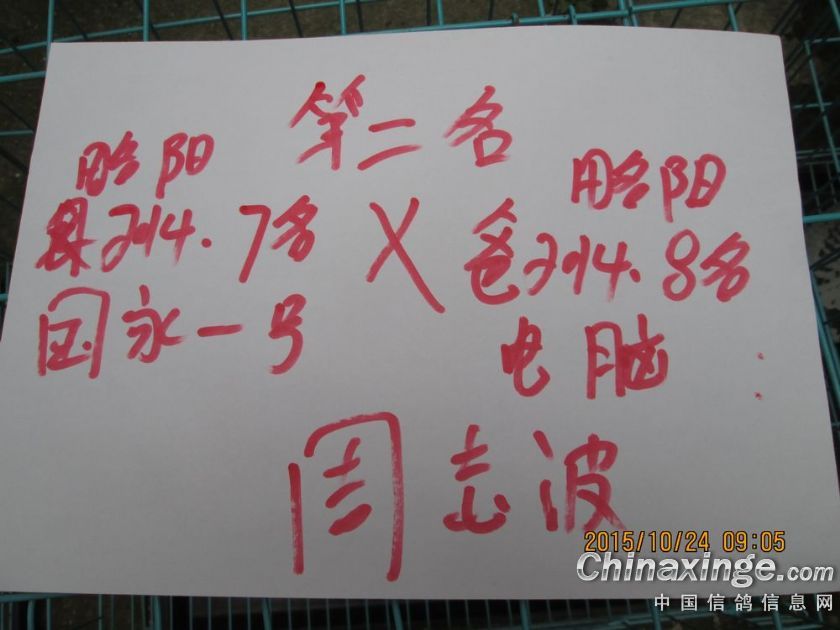 第二名
略阳 略阳
县2014.7名 X 爸2014.8名
国永一号 电脑
周志波
2015/10/24 09:05
Chinaxinge.com
中国信鸽信息网